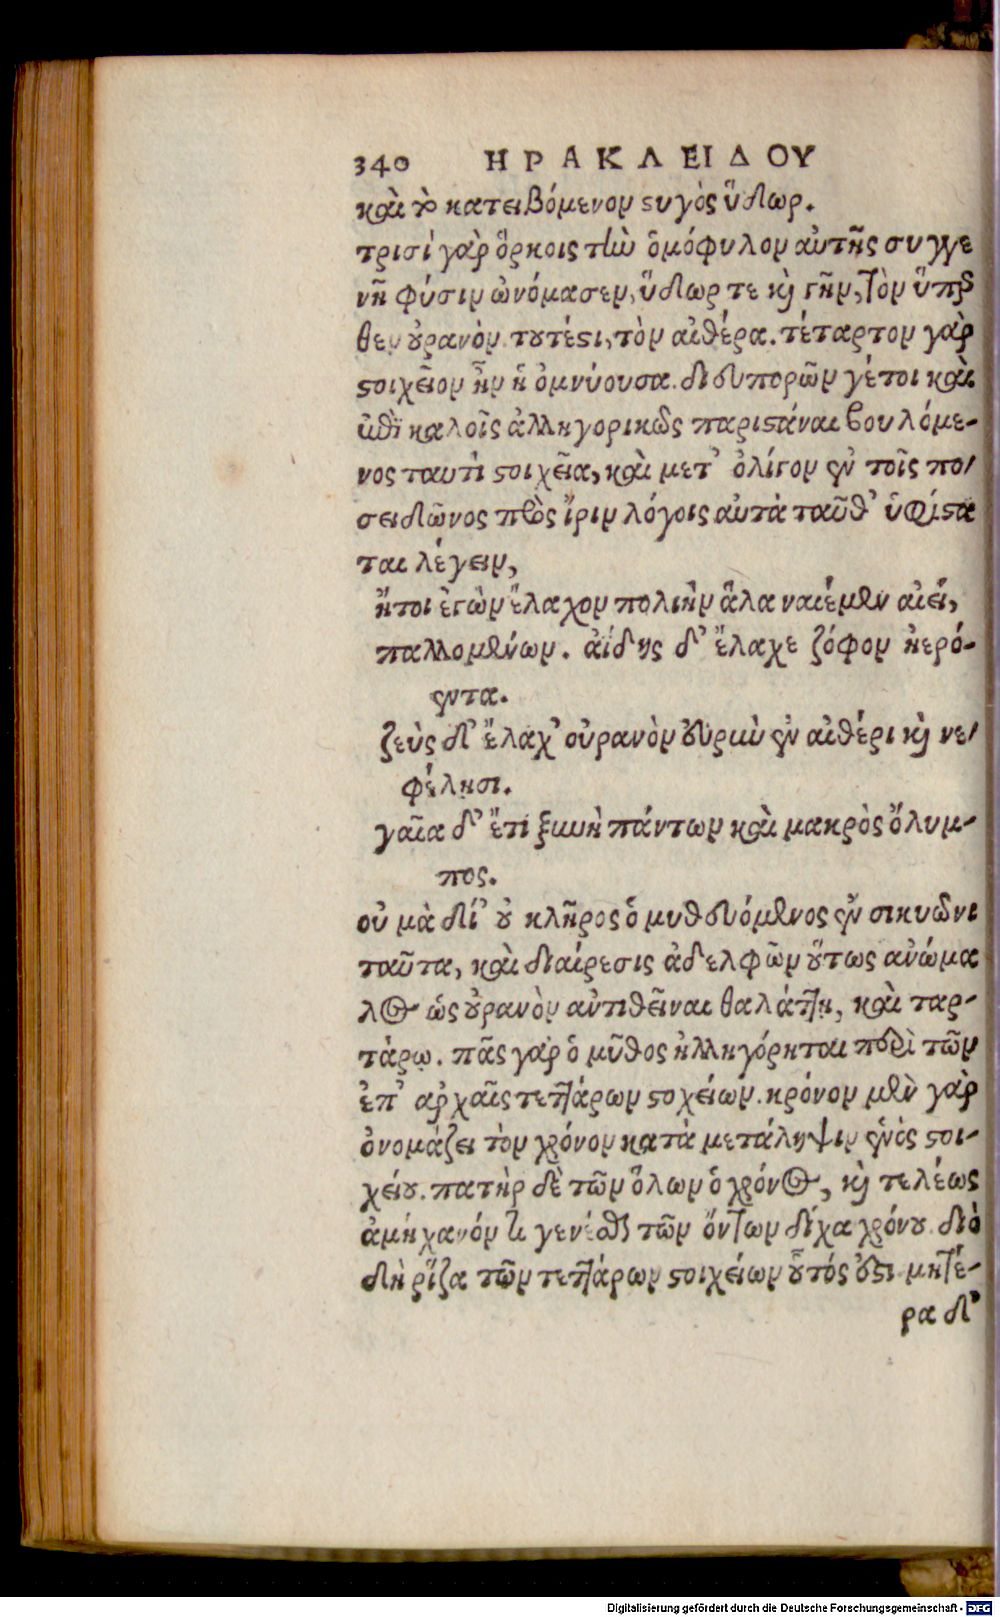 340 ΗΡΑΚΛΕΙΔΟΥ
καὶ τὸ κατειβόμενον στυγὸς ὕδωρ.
τρισὶ γὰρ ὅρκοις τὴν ὁμόφυλον αὐτῆς συγγε
νῆ φύσιν ὠνόμασεν, ὕδωρ τε καὶ γῆν, τὸν ὕπερ
θεν οὐρανὸν τουτέστι, τὸν αἰθέρα. τέταρτον γὰρ
στοιχεῖον ἦν ἡ ὀμνύουσα. διευπορῶν γέ τοι καὶ
ἐπὶ καλοῖς ἀλληγορικῶς παριστάναι βουλόμε-
νος ταυτὶ στοιχεῖα, καὶ μετ' ὀλίγον ἐν τοῖς πο-
σειδῶνος πρὸς ἴριν λόγοις αὐτὰ ταῦθ' ὑφίστα
ται λέγειν,
ἤτοι ἐγὼν ἔλαχον πολιὴν ἅλα ναιέμεν αἰεί,
παλλομένων. ἀίδης δ' ἔλαχε ζόφον ἠερό-
εντα.
ζεὺς δ' ἔλαχ' οὐρανὸν εὐρὺν ἐν αἰθέρι καὶ νε-
φέλησι.
γαῖα δ' ἔτι ξυνὴ πάντων καὶ μακρὸς ὄλυμ-
πος.
οὐ μὰ δί' οὐ κλῆρος ὁ μυθευόμενος ἐν σικυῶνι
ταῦτα, καὶ διαίρεσις ἀδελφῶν οὕτως ἀνώμα
λος ὡς οὐρανὸν ἀντιθεῖναι θαλάττῃ, καὶ ταρ-
τάρῳ. πᾶς γαρ ὁ μῦθος ἠλληγόρηται περὶ τῶν
ἐπ' ἀρχαῖς τεττάρων στοχείων. κρόνον μὲν γὰρ
ὀνομάζει τὸν χρόνον κατὰ μετάληψιν ἑνὸς στοι-
χείου. πατὴρ δὲ τῶν ὅλων ὁ χρόνος, καὶ τελέως
ἀμήχανόν τι γενέσθαι τῶν ὄντων δίχα χρόνου. διὸ
δὴ ῥίζα τῶν τεττάρων στοιχείων οὗτός ἐστι. μητέ-
ρα δ'
Digitalisierung gefördert durch die Deutsche Forschungsgemeinschaft - DFG